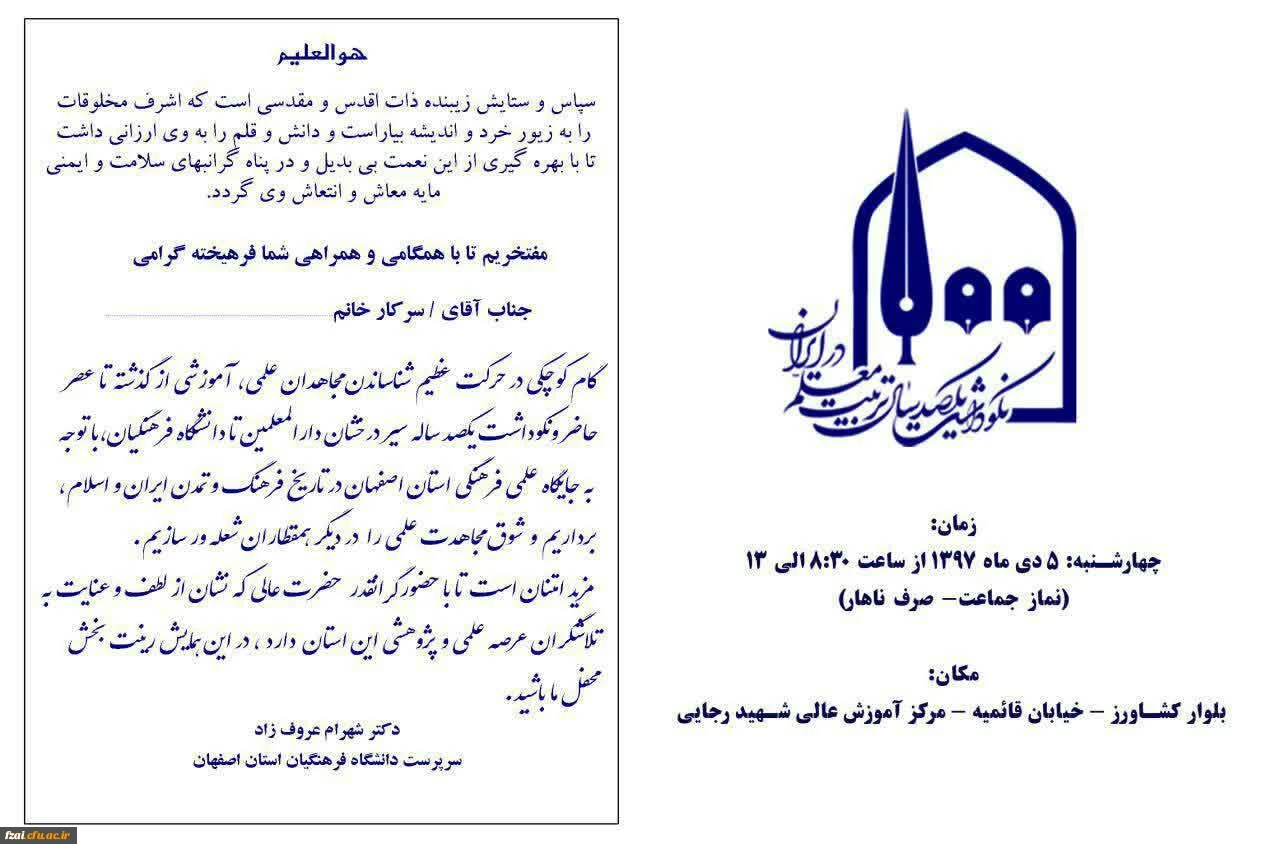 هوالعلیم
سپاس و ستایش زیبنده ذات اقدس و مقدسی است که اشرف مخلوقات
را به زیور خرد و اندیشه بیاراست و دانش و قلم را به وی ارزانی داشت
تا با بهره گیری از این نعمت بی بدیل و در پناه گرانبهای سلامت و ایمنی
مایه معاش و انتعاش وی گردد.
مفتخریم تا با همگامی و همراهی شما فرهیخته گرامی
جناب آقای / سرکار خانم
گام کوچکی در حرکت عظیم شناساندن مجاهدان علمی، آموزشی از گذشته تا عصر
حاضر و نکوداشت یکصد ساله سیر درخشان دارالمعلمین تا دانشگاه فرهنگیان، با توجه
به جایگاه علمی فرهنگی استان اصفهان در تاریخ فرهنگ و تمدن ایران و اسلام ،
برداریم و شوق مجاهدت علمی را در دیگر همقطاران شعله ور سازیم .
مزید امتنان است تا با حضور گرانقدر حضرت عالی که نشان از لطف و عنایت به
تلاشگران عرصه علمی و پژوهشی این استان دارد ، در این همایش زینت بخش
محفل ما باشید.
دکتر شهرام عروف زاد
سرپرست دانشگاه فرهنگیان استان اصفهان
نکوداشت یکصد سال تربیت معلم در ایران
زمان:
چهارشنبه: ۵ دی ماه ۱۳۹۷ از ساعت ۸:۳۰ الی ۱۳
(نماز جماعت- صرف ناهار)
مکان:
بلوار کشاورز – خیابان قائمیه – مرکز آموزش عالی شهید رجایی
fzai.cfu.ac.ir